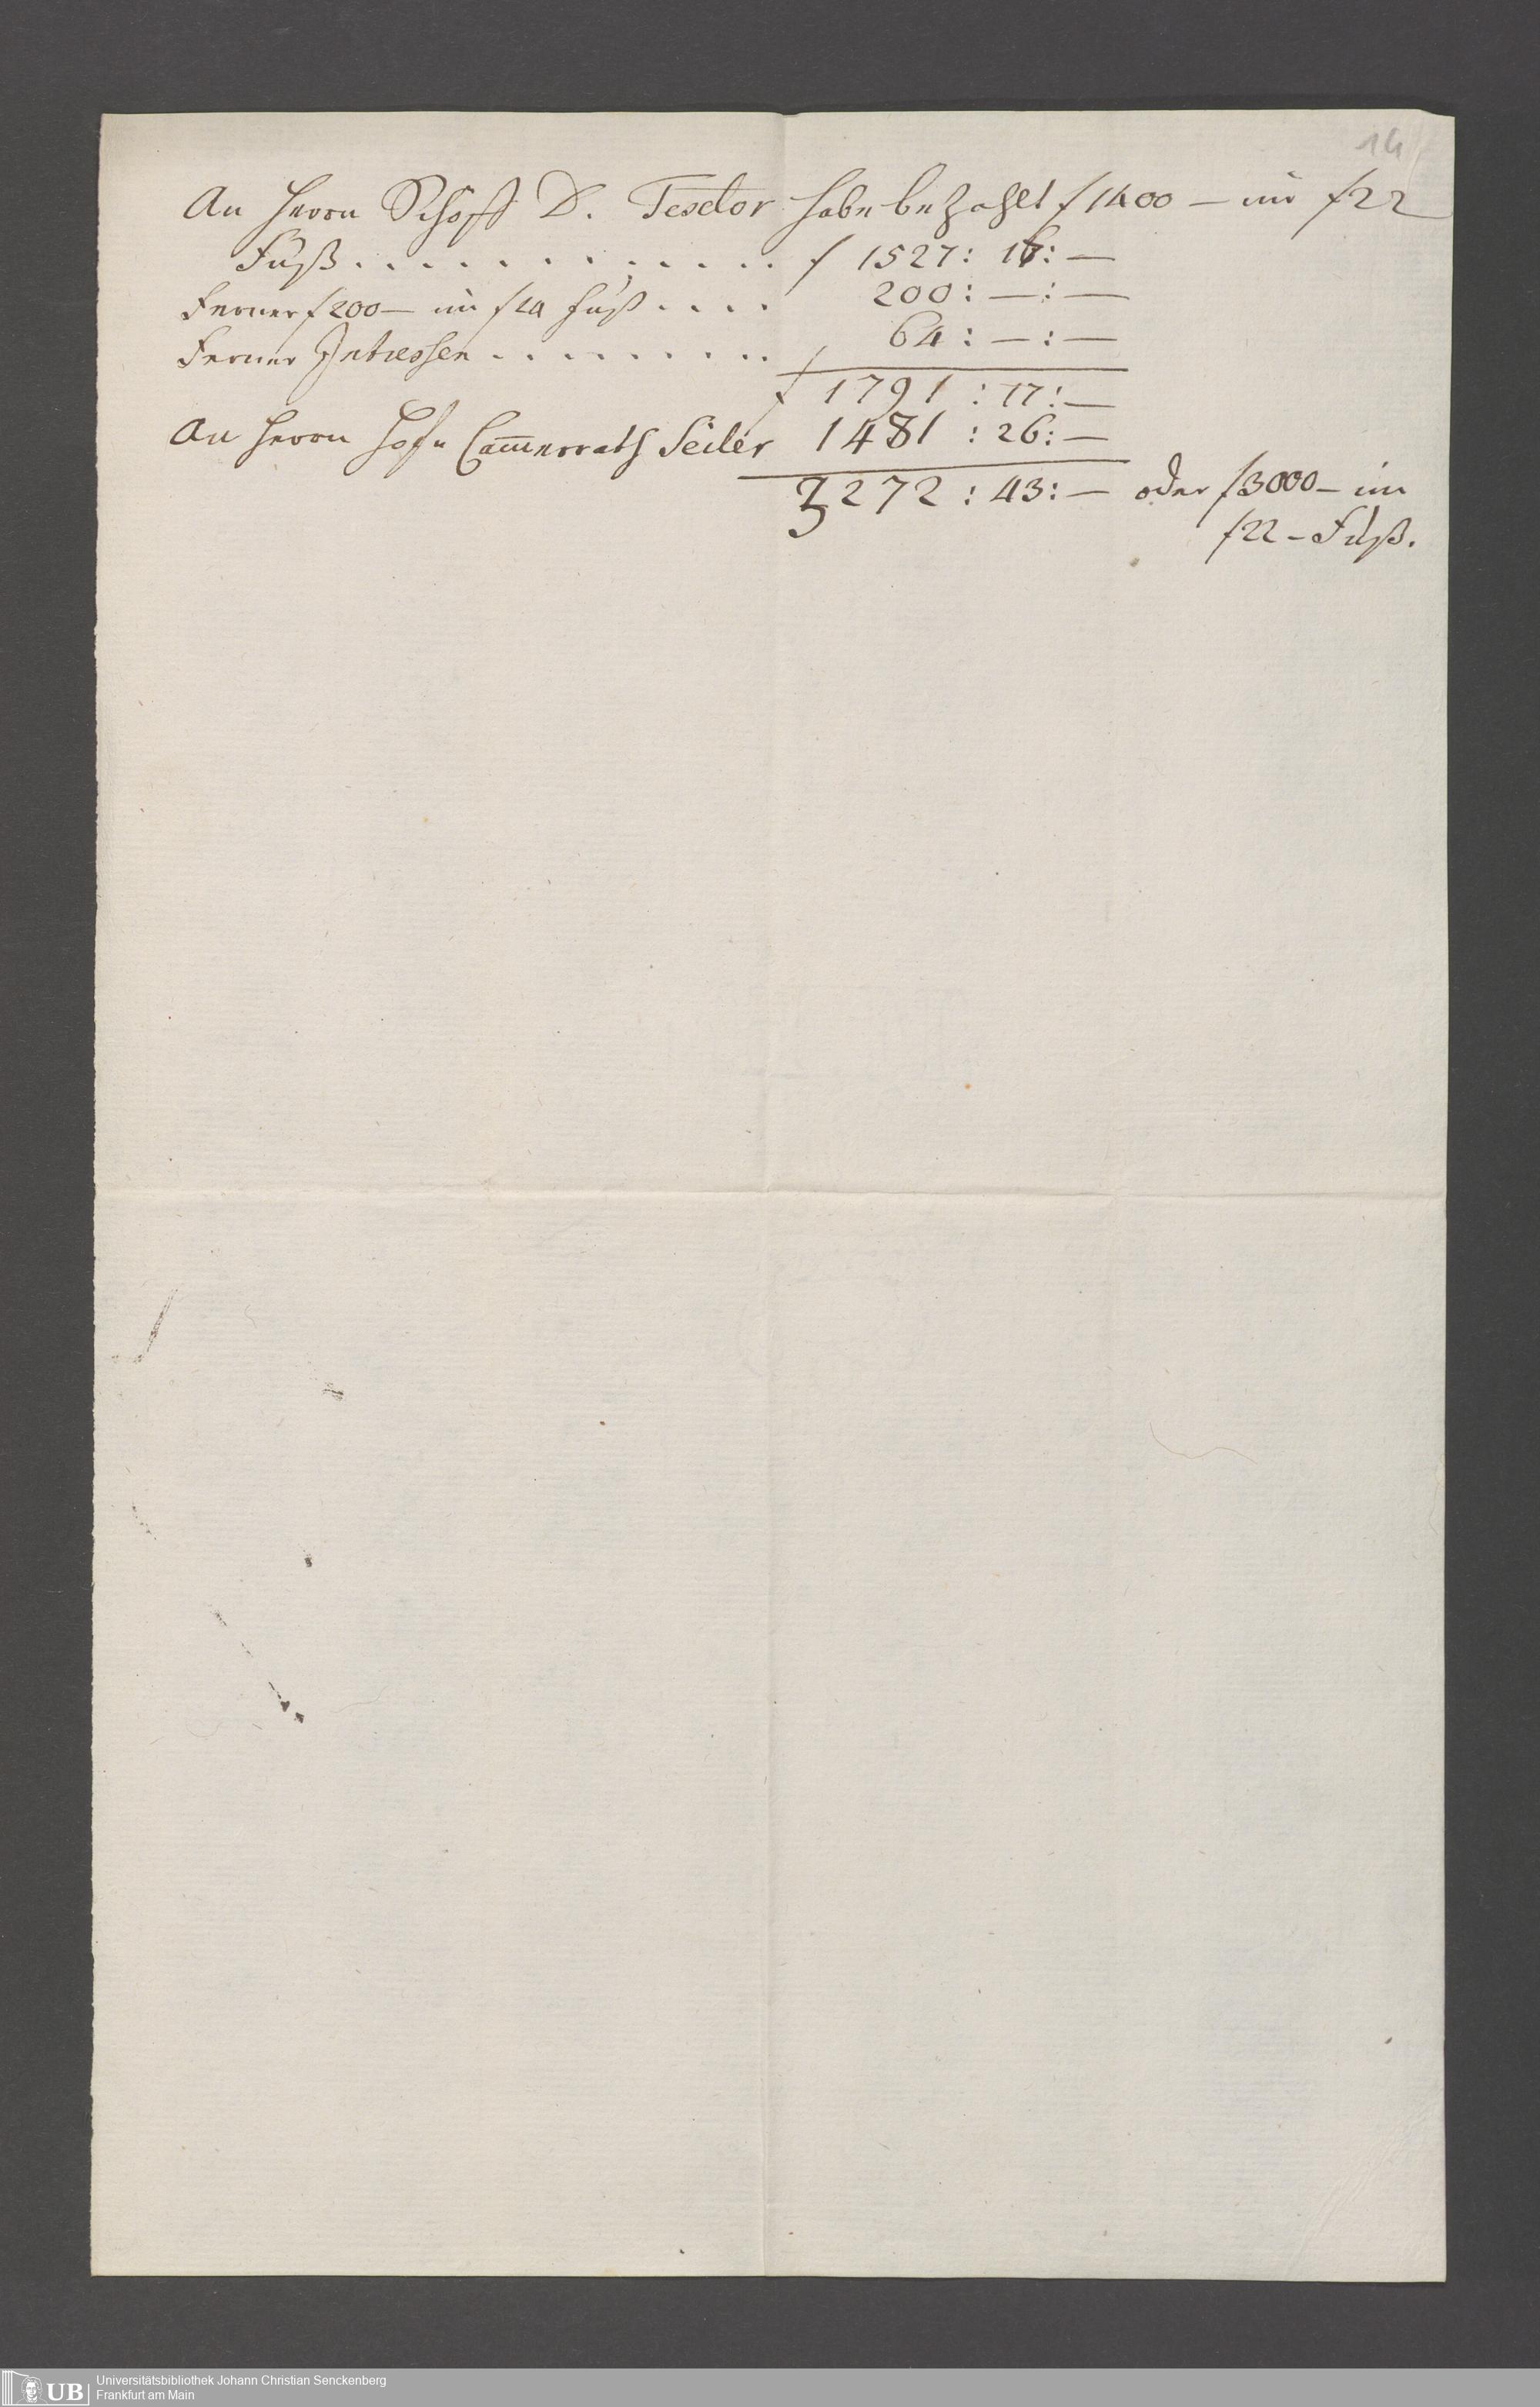 14
An Herrn Schöff D. Textor habe bezahlt f 1400 — im f 22
Fuß . . . . . . . . . . . . f 1527: 17: —
Ferner f 200 — im f 24 Fuß . . . . 200: — : —
Ferner Intressen . . . . . . . . . 64: — : —
f 1791 : 17: —
An Herrn Hof u Cam̅errath Seiler 1481 : 26: —
3272 : 43: — oder f 3000 — im
f 22 — Fuß.
UB Universitätsbibliothek Johann Christian Senckenberg
Frankfurt am Main